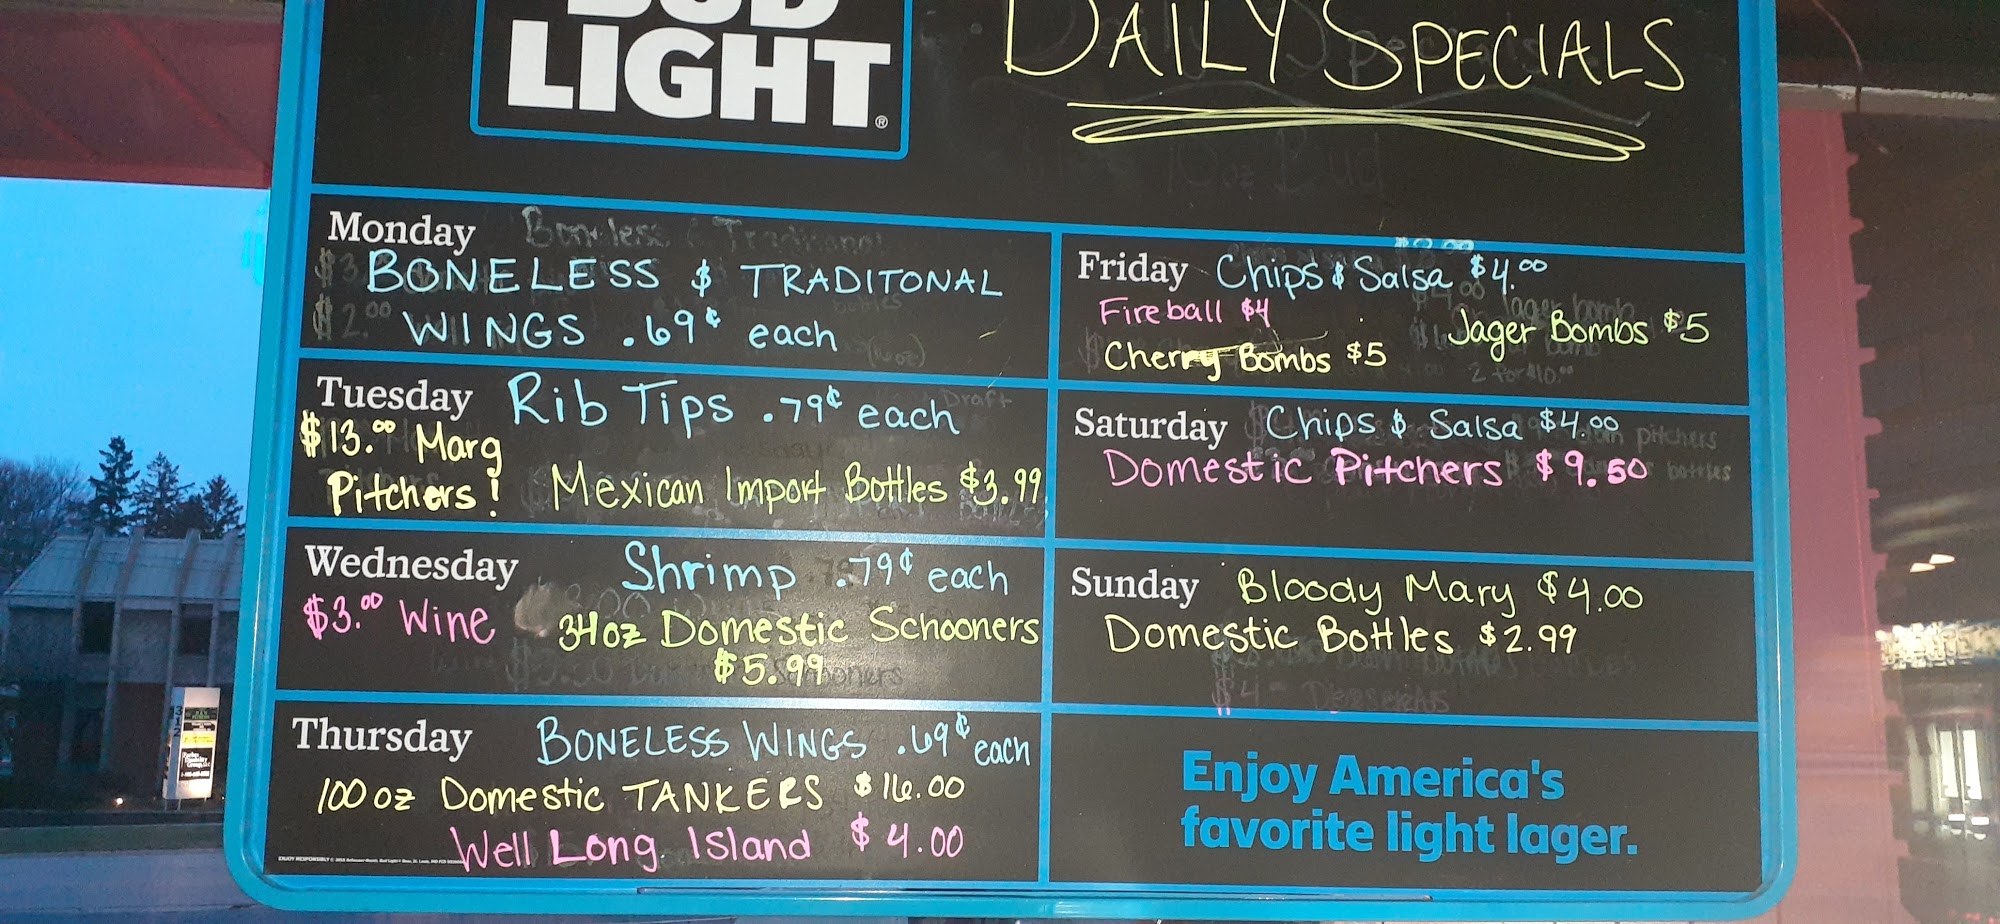 BUD
LIGHT®
DAILY SPECIALS
Monday
BONELESS & TRADITONAL
WINGS .69¢ each
Tuesday Rib Tips .79¢ each
$13.00 Marg
Pitchers! Mexican Import Bottles $3.99
Wednesday Shrimp .79¢ each
$3.00 Wine 34oz Domestic Schooners
$5.99
Thursday BONELESS WINGS .69¢ each
100 oz Domestic TANKERS $16.00
Well Long Island $4.00
Friday Chips & Salsa $4.00
Fireball $4
Jager Bombs $5
Cherry Bombs $5
Saturday Chips & Salsa $4.00
Domestic Pitchers $9.50
Sunday Bloody Mary $4.00
Domestic Bottles $2.99
Enjoy America's
favorite light lager.